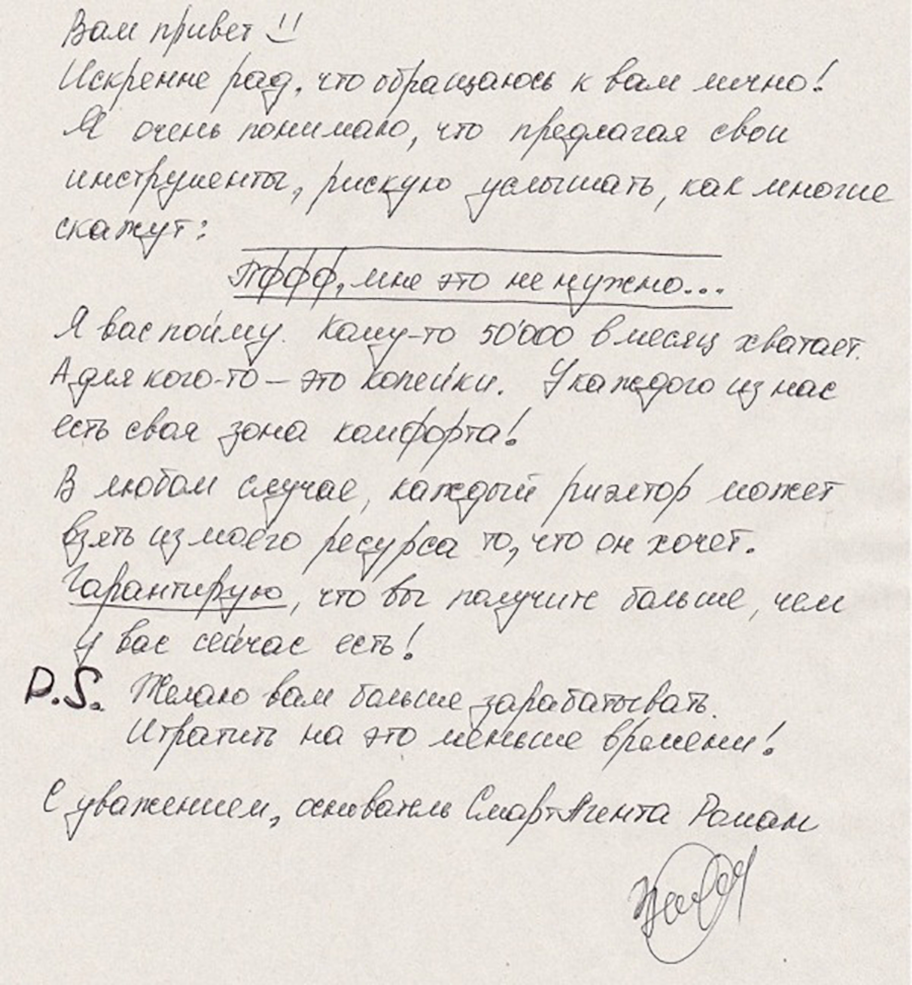 Вам привет !!
Искренне рад, что обращаюсь к вам лично!
Я очень понимаю, что предлагая свои
инструменты, рискую услышать, как многие
скажут:
Пффф, мне это не нужно...
Я вас пойму. Кому-то 50'000 в месяц хватает.
А для кого-то — это копейки. У каждого из нас
есть своя зона комфорта!
В любом случае, каждый риэлтор может
взять из моего ресурса то, что он хочет.
Гарантирую, что вы получите больше, чем
у вас сейчас есть!
P.S. Желаю вам больше зарабатывать.
И тратить на это меньше времени!
С уважением, основатель СмартАгента Роман